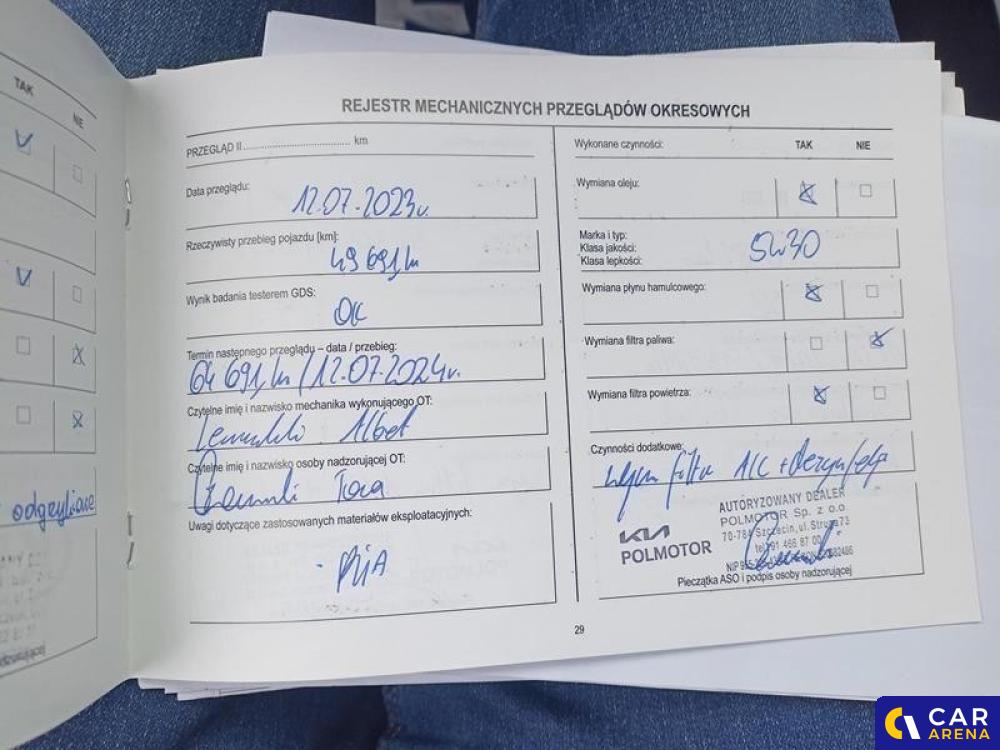 TAK
NIE
odgrybianie
REJESTR MECHANICZNYCH PRZEGLĄDÓW OKRESOWYCH
PRZEGLĄD II........................................ km
Data przeglądu:
12.07.2023r.
Rzeczywisty przebieg pojazdu [km]:
49 691 km
Wynik badania testerem GDS:
OK
Termin następnego przeglądu – data / przebieg:
64 691 km / 12.07.2024r.
Czytelne imię i nazwisko mechanika wykonującego OT:
Czytelne imię i nazwisko osoby nadzorującej OT:
Uwagi dotyczące zastosowanych materiałów eksploatacyjnych:
Wykonane czynności:
TAK
NIE
Wymiana oleju:
Marka i typ:
Klasa jakości:
Klasa lepkości:
5W30
Wymiana płynu hamulcowego:
Wymiana filtra paliwa:
Wymiana filtra powietrza:
Czynności dodatkowe:
filtra A/C +
AUTORYZOWANY DEALER
POLMOTOR Sp. z o.o.
70-784 Szczecin, ul. Struga 73
KIA
POLMOTOR
Pieczątka ASO i podpis osoby nadzorującej
29
CAR
ARENA